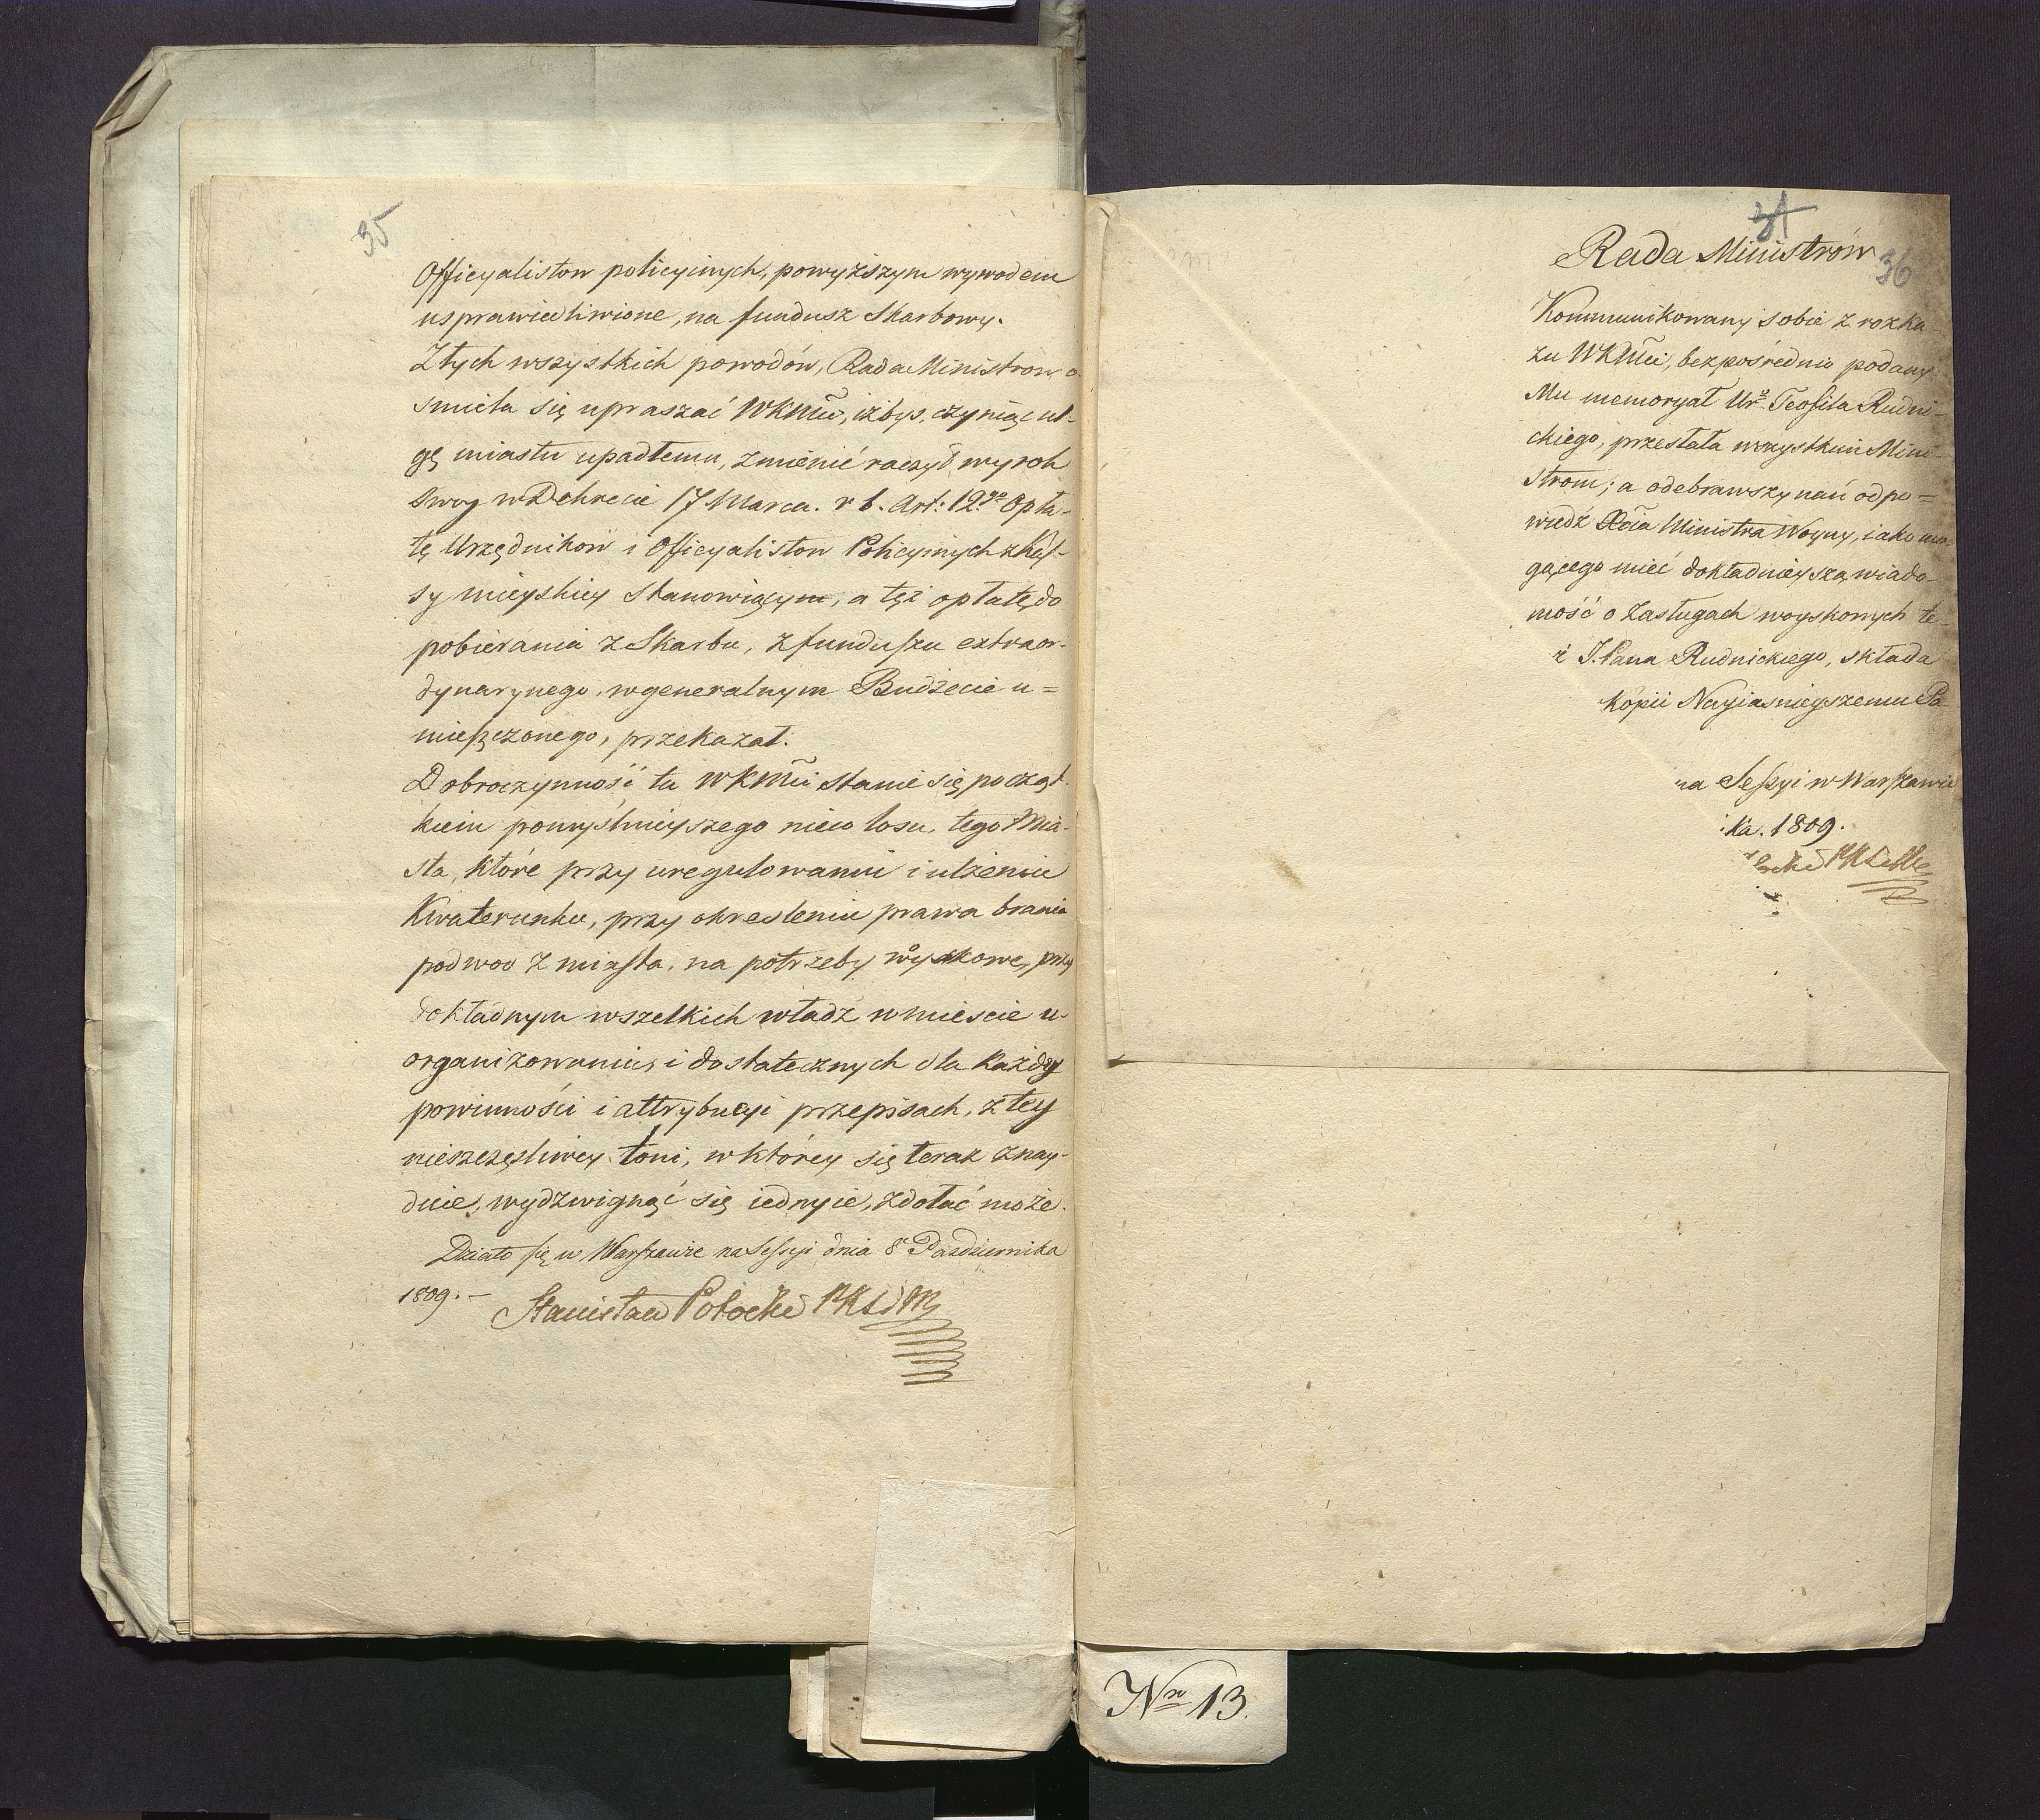 35
Officyalistow policyinych, powyższym wywodem
usprawiedliwione, na fundusz Skarbowy.
Z tych wszystkich powodów, Rada Ministrow o-
smiela się upraszać WKMci, iżbyś, czyniąc ul-
gę miastu upadłemu, zmienić raczył wyrok
Swoy w Dekrecie 17 Marca. r b. Art: 12go Opła-
tę Urzędnikow i Officyalistow Policyinych z Kas-
sy mieyskiey Stanowiącym, a tęż opłatę, do
pobierania z Skarbu, z funduszu extraor-
dynarynego, w generalnym Budżecie u=
mieszczonego, przekazał.
Dobroczynność ta WKMci Stanie się począt-
kiem pomyślnieyszego nieco losu, tego Mia-
sta, które przy uregulowaniu i ulżeniu
Kwaterunku, przy okresleniu prawa brania
podwod z miasta, na potrzeby woyskowe, przy
dokładnym wszelkich władz w mieście u-
organizowaniu, i dostatecznych dla Każdey
powinności i attrybucyi przepisach, z tey
nieszczęsliwey toni, w którey się teraz znay-
duie, wydzwignąć się iedynie, zdołać może.
Działo się w Warszawie na Sessyi dnia 8 Pazdziernika
1809. -
Stanisław Potocki PRSiM
31
Rada Ministrów
36
Kommunikowany sobie z rozka-
zu WKMci, bezpośrednio podany
Mu memoryał Uro Teofila Rudni-
ckiego, przesłała wszystkim Mini-
strom; a odebrawszy nań odpo=
wiedź Xcia Ministra Woyny, iako mo-
gącego mieć dokładnieyszą wiado-
mość o zasługach woyskowych te-
ż J. Pana Rudnickiego, składa
kopii Nayiasnieyszemu Pa-
na Sessyi w Warszawie
ka. 1809.
Nro 13.